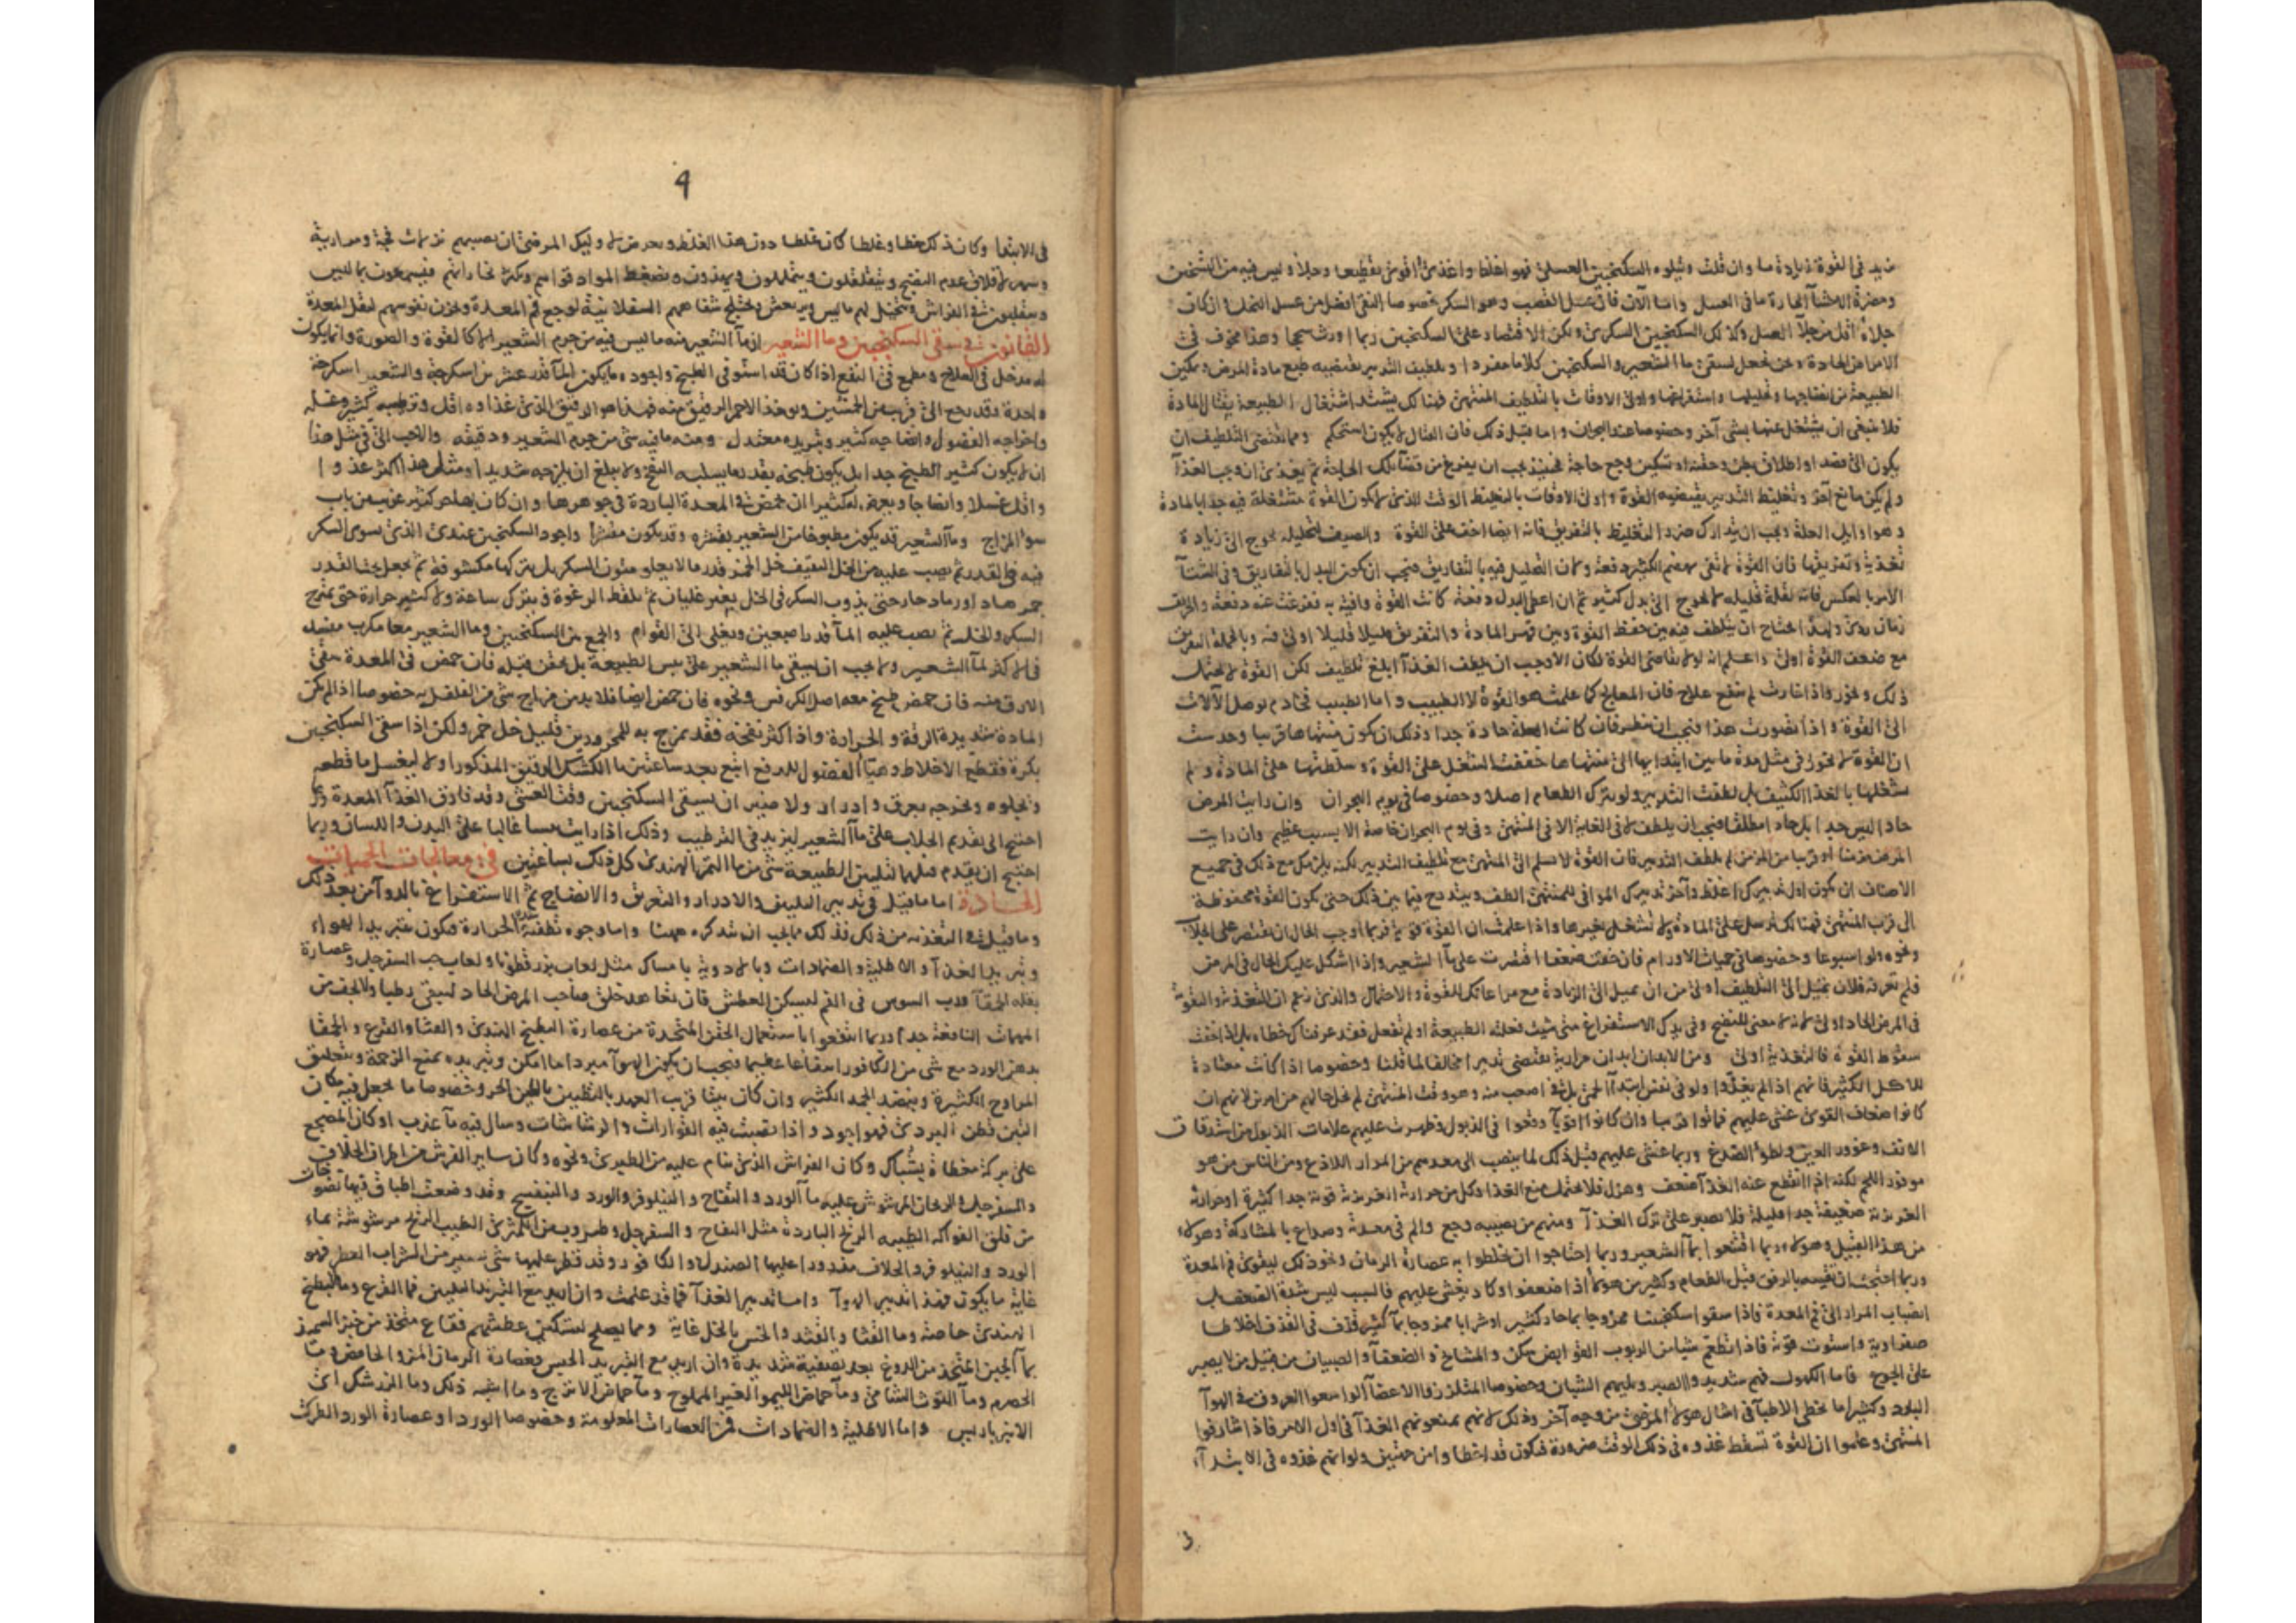 يزيد في القوة زيادة ما وان قلت ويتلوه السكنجبين العسلى فهو اغلظ واغذى واقوى تقطيعا وجلاء وليس فيه من التسخين
ومضرة الاحشاء الحارة ما فى العسل واما الآن فان عسل القصب وهو السكر خصوصا النقى افضل من عسل النحل وان كان
جلاؤه اقل من جلاء العسل وكذلك السكنجبين السكرى ولكن الاقتصار على السكنجبين ربما اورث سحجا وهذا مخوف فى
الامراض الحادة ونحن نجعل لسقى ماء الشعير والسكنجبين كلاما مفردا وتلطيف التدبير يقتضيه طبع مادة المرض وتمكين
الطبيعة من انضاجها وتحليلها واستفراغها واولى الاوقات بالتلطيف المنتهى فهنالك يشتد اشتغال الطبيعة بقتال المادة
فلا ينبغى ان يشتغل عنها بشى آخر وخصوصا عند البحران واما قبل ذلك فان القتال لا يكون استحكم ومما يقتضى التلطيف ان
يكون الى فصد او اطلاق بطن وحقنة او تسكين وجع حاجة فحينئذ يجب ان يفرغ من قضاء تلك الحاجة ثم يغذى ان وجب الغذاء
ولم يكن مانع آخر وتغليظ التدبير يقتضيه القوة واولى الاوقات بالتغليظ الوقت الذى لا يكون القوة مشتغلة فيه جدا بالمادة
وهو اوايل العلة ويجب ان يتدارك ضرر التغليظ بالتفريق فانه ايضا اخف على القوة والصيف لتحليله يحوج الى زيادة
تغذية وتفريقها فان القوة لا تفى بهضم الكثير دفعة ولان التحليل فيه بالتفاريق فيجب ان يكون البدل بالتفاريق وفى الشتاء
الامر بالعكس فانه لقلة تحليله لا يحوج الى بدل كثير ثم ان اعطى البدل دفعة كانت القوة وافية به ففرغت عنه دفعة والخريف
زمان ردى ولهذا يحتاج ان يتلطف فيه بين حفظ القوة وبين قهر المادة والتفريق قليلا قليلا اولى فيه وبالجملة التفريق
مع ضعف القوة اولى واعلم انه لولا تقاضى القوة لكان الاوجب ان يلطف الغذاء ابلغ تلطيف لكن القوة لا تحتمل
ذلك وتخور واذا خارت لم ينفع علاج فان المعالج كما علمت هو القوة لا الطبيب واما الطبيب فخادم يوصل الآلات
الى القوة واذا تصورت هذا فيجب ان تنظر فان كانت العلة حادة جدا وذلك ان يكون منتهاها قريبا وحدست
ان القوة لا تخور فى مثل مدة ما بين ابتدايها الى منتهاها خففت الشغل على القوة وسلطتها على المادة ولم
تشغلها بالغذا الكثيف بل لطفت التدبير ولو بترك الطعام اصلا وخصوصا فى يوم البحران وان رايت المرض
حادا ليس جدا بل حادا مطلقا فيجب ان يلطف لا فى الغاية الا فى المنتهى وفى يوم البحران خاصة الا بسبب عظيم وان رايت
المرض مزمنا او قريبا من المزمن لم يلطف التدبير فان القوة لا تسلم الى المنتهى مع تلطيف التدبير لكنه يلزمك مع ذلك فى جميع
الاصناف ان يكون اول تدبيرك اغلظ وآخر تدبيرك الموافى للمنتهى الطف ويتدرج فيما بين ذلك حتى يكون القوة محفوظة
الى قرب المنتهى فهنالك ترسل على المادة ولا تشغل بغيرها واذا علمت ان القوة قوية فربما اوجب الحال ان تقتصر على الجلاب
ونحوه ولو اسبوعا وخصوصا فى حميات الاورام فان خفت ضعفا اقتصرت على ماء الشعير واذا اشكل عليك الحال فى المرض
فلم تعرفه فلان تميل الى التلطيف اولى من ان تميل الى الزيادة مع مراعاتك للقوة والاحتمال والذى زعم ان التغذية والتقوية
فى المرض الحاد اولى لانه لا معنى للنضج وفى يدك الاستفراغ متى شيت فعلته الطبيعة او لم تفعل فقد عرفناك خطاءه بل اذا خفت
سقوط القوة فالتغذية اولى ومن الابدان ابدان مرارية يقتضى تدبيرا مخالفا لما قلنا وخصوصا اذا كانت معتادة
للاكل الكثير فانهم اذا لم يغذوا ولو فى نفس ابتداء الحمى بل فى اصعب منه وهو وقت المنتهى لم يخل حالهم من امرين لانهم ان
كانوا ضعاف القوى غشى عليهم فماتوا قريبا وان كانوا اقوياء وقعوا فى الذبول وظهرت عليهم علامات الذبول من استدقاق
الانف وغوور العين ولطوء الصدغ وربما غشى عليهم قبل ذلك لما ينصب الى معدهم من المرار اللاذع ومن الناس من هو
موفور اللحم لكنه اذا انقطع عنه الغذاء ضعف وهزل فلا يحتمل منع الغذا وكل من حرارته الغريزية قوية جدا كثيرة او حرارته
الغريزية ضعيفة جدا قليلة فلا يصبر على ترك الغذاء ومنهم من يصيبه وجع والم فى معدته وصداع بالمشاركة وهولاء
من هذا القبيل وهولاء ربما اقنعوا بماء الشعير وربما احتاجوا ان تخلطوا به عصارة الرمان ونحو ذلك ليقوى فم المعدة
وربما احتجت ان تقيه بالرفق قبل الطعام وكثير من هولاء اذا ضعفوا وكاد يغشى عليهم فالسبب ليس شدة الضعف بل
انصباب المرار الى فم المعدة فاذا سقوا سكنجبينا ممزوجا بماء حار كثير او شرابا ممزوجا بماء كثير قذف فى القذف اخلاطا
صفراوية واستوت قوته فاذا تطعم شيا من الربوب القوابض سكن والمشايخ والضعفاء والصبيان من قبيل من لا يصبر
على الجوع فاما الكهول فهم شديدوا الصبر ويليهم الشبان وخصوصا المتلززوا الاعضاء الواسعوا العروق فى الهواء
البارد وكثيرا ما يخطى الاطباء فى امثال هولاء المرضى من وجه آخر وذلك لانهم يمنعونهم الغذاء فى اول الامر فاذا شارفوا
المنتهى وعلموا ان القوة تسقط غذوه فى ذلك الوقت ضرورة فيكون قد اخطاوا من جهتين ولو انهم غذوه فى الابتداء
4
فى الابتدا وكان ذلك خطا وغلطا كان غلطا دون هذا الغلط ويعرض لاوليك المرضى ان يصيبهم نزلات فجة ومرارية
وسهر لاقلاق عدم النضج ويتقلقلون ويتململون ويهذون وتضغط المواد قواهم ويكثر بخاراتهم فيسمعون ما ليس
ويتقلبون فى الفراش ويتخيل لهم ما ليس ويرتعش ويختلج شفاههم السفلانية لوجع فم المعدة ويحزن نفوسهم لثقل المعدة
القانون فى سقى السكنجبين وماء الشعير ان ماء الشعير منه ما ليس فيه من جرم الشعير الا كالقوة والصورة وانما يكون
له مدخل فى العلاج ومطمع فى النفع اذا كان قد استوفى الطبخ واجوده ما يكون الماء قدر عشرين اسكرجة والشعير اسكرجة
واحدة وقد رجع الى قريب من الخمسين ويوخذ الاحمر الرقيق منه فهذا هو الرقيق الذى غذاوه اقل وترطيبه كثير وغسله
واخراجه الفضول وانضاجه كثير وتبريده معتدل ومنه ما فيه شى من جرم الشعير ودقيقه والاحب الى فى مثل هذا
ان لا يكون كثير الطبخ جدا بل يكون طبخه بقدر ما يسلبه النفخ ولا يبلغ ان يلزجه شديدا ومثل هذا اكثر غذوا
واقل غسلا وانضاجا ويعرض له كثيرا ان يحمض فى المعدة الباردة فى جوهرها وان كان بها حر كثير غريب من باب
سوء المزاج وماء الشعير قد يكون مطبوخا من الشعير بقشره وقد يكون مقشرا واجود السكنجبين عندى الذى يسوى السكر
فيه فى القدر ثم يصب عليه من الخل الثقيف خل الخمر قدر ما لا يعلو متون السكر بل يتركها مكشوفة ثم يجعل تحت القدر
جمر هاد او رماد حار حتى يذوب السكر فى الخل بغير غليان ثم يلقط الرغوة ويترك ساعة ولا كثير حرارة حتى يمتزج
السكر والخل ثم يصب عليه الماء قدر اصبعين ويغلى الى القوام والجمع بين السكنجبين وماء الشعير معا مكرب مفسد
فى الاكثر لماء الشعير ولا يجب ان يسقى ماء الشعير على يبس الطبيعة بل يحقن قبله فان حمض فى المعدة سقى
الارق منه فان حمض طبخ معه اصل الكرفس ونحوه فان حمض ايضا فلا بد من مزاج شى من الفلفل به خصوصا اذا لم يكن
المادة شديدة الرقة والحرارة واذا كثر نفخه فقد يمزج به للمحرورين قليل خل خمر ولكن اذا سقى السكنجبين
بكرة فقطع الاخلاط وهيا الفضول للدفع اتبع بعد ساعتين ماء الكشك الرقيق المذكور اولا ليغسل ما قطعه
ونجلوه ويخرجه بعرق وادرار ولا ضير ان يسقى السكنجبين وقت العشى وقد فارق الغذاء المعدة وربما
احتيج الى تقديم الجلاب على ماء الشعير ليزيد فى الترطيب وذلك اذا رايت يبسا غالبا على البدن واللسان وربما
احتيج ان يقدم قبلهما لتليين الطبيعة شى من ماء التمر الهندى كل ذلك بساعتين فى معالجات الحميات
الحادة اما ما قيل فى تدبير التليين والادرار والتعريق والانضاج ثم الاستفراغ بالدواء من بعد ذلك
وما قيل فى التغذية من ذلك فذلك مما يجب ان تتذكره ههنا واما وجوه تطفئة الحرارة فيكون بتبريد الهواء
وتبريد الغذاء والاطلية والضمادات وبالادوية بامساك مثل لعاب بزر قطونا ولعاب حب السفرجل وعصارة
بقلة الحمقاء ورب السوس فى الفم ليسكن العطش فان تعاهد حلق صاحب المرض الحاد ليبقى رطبا ولا يجف من
المهمات النافعة جدا وربما انتفعوا باستعمال الحقن المتخذة من عصارة البطيخ الهندى والقثا والقرع والحمقا
بدهن الورد مع شى من الكافور انتفاعا عظيما فيجب ان يكون الهواء مبردا ما امكن وتبريده بمنع الزحمة وبتعليق
المراوح الكثيرة وبنضد الجمد الكثير وان كان بيتا قريب العهد بالتطيين بالطين الحر وخصوصا ما يجعل فيه مكان
التبن قطن البردى فهو اجود واذا نصبت فيه الفوارات والرشاشات وسال فيه ماء عذب او كان المضجع
على بركة مغطاة بشباك وكان الفراش الذى ينام عليه من الطبرى ونحوه وكان ساير الفرش من اطراف الخلاف
والسفرجل والريحان المرشوش عليه ماء الورد والتفاح والنيلوفر والورد والبنفسج وقد وضعت اطباق فيها نضوجات
من فلق الفواكه الطيبة الريح الباردة مثل التفاح والسفرجل وضروب من الكمثرى الطيب الريح مرشوشة بماء
الورد والنيلوفر والخلاف مذرورا عليها الصندل والكافور وقد قطر عليها شى يسير من الشراب العطر فهو
غاية ما يكون فهذا تدبير الهواء واما تدبير الغذاء فما قد علمت وان اريد مع التبريد التليين فماء القرع وماء البطيخ
الهندى خاصة وماء القثا والقثد والخس بالخل غاية ومما يصلح لتسكين عطشهم فقاع متخذ من خبز السميذ
بماء الجبن المتخذ من الدوغ بعد تصفية شديدة وان اريد مع التبريد الحبس فعصارة الرمان المز والحامض وماء
الحصرم وماء التوت الشامى وماء حماض الليمو الغير المملوح وماء حماض الاترج وما اشبه ذلك وماء الزرشك اى
الانبرباريس واما الاطلية والضمادات فمن العصارات المعلومة وخصوصا الورد او عصارة الورد الطرى